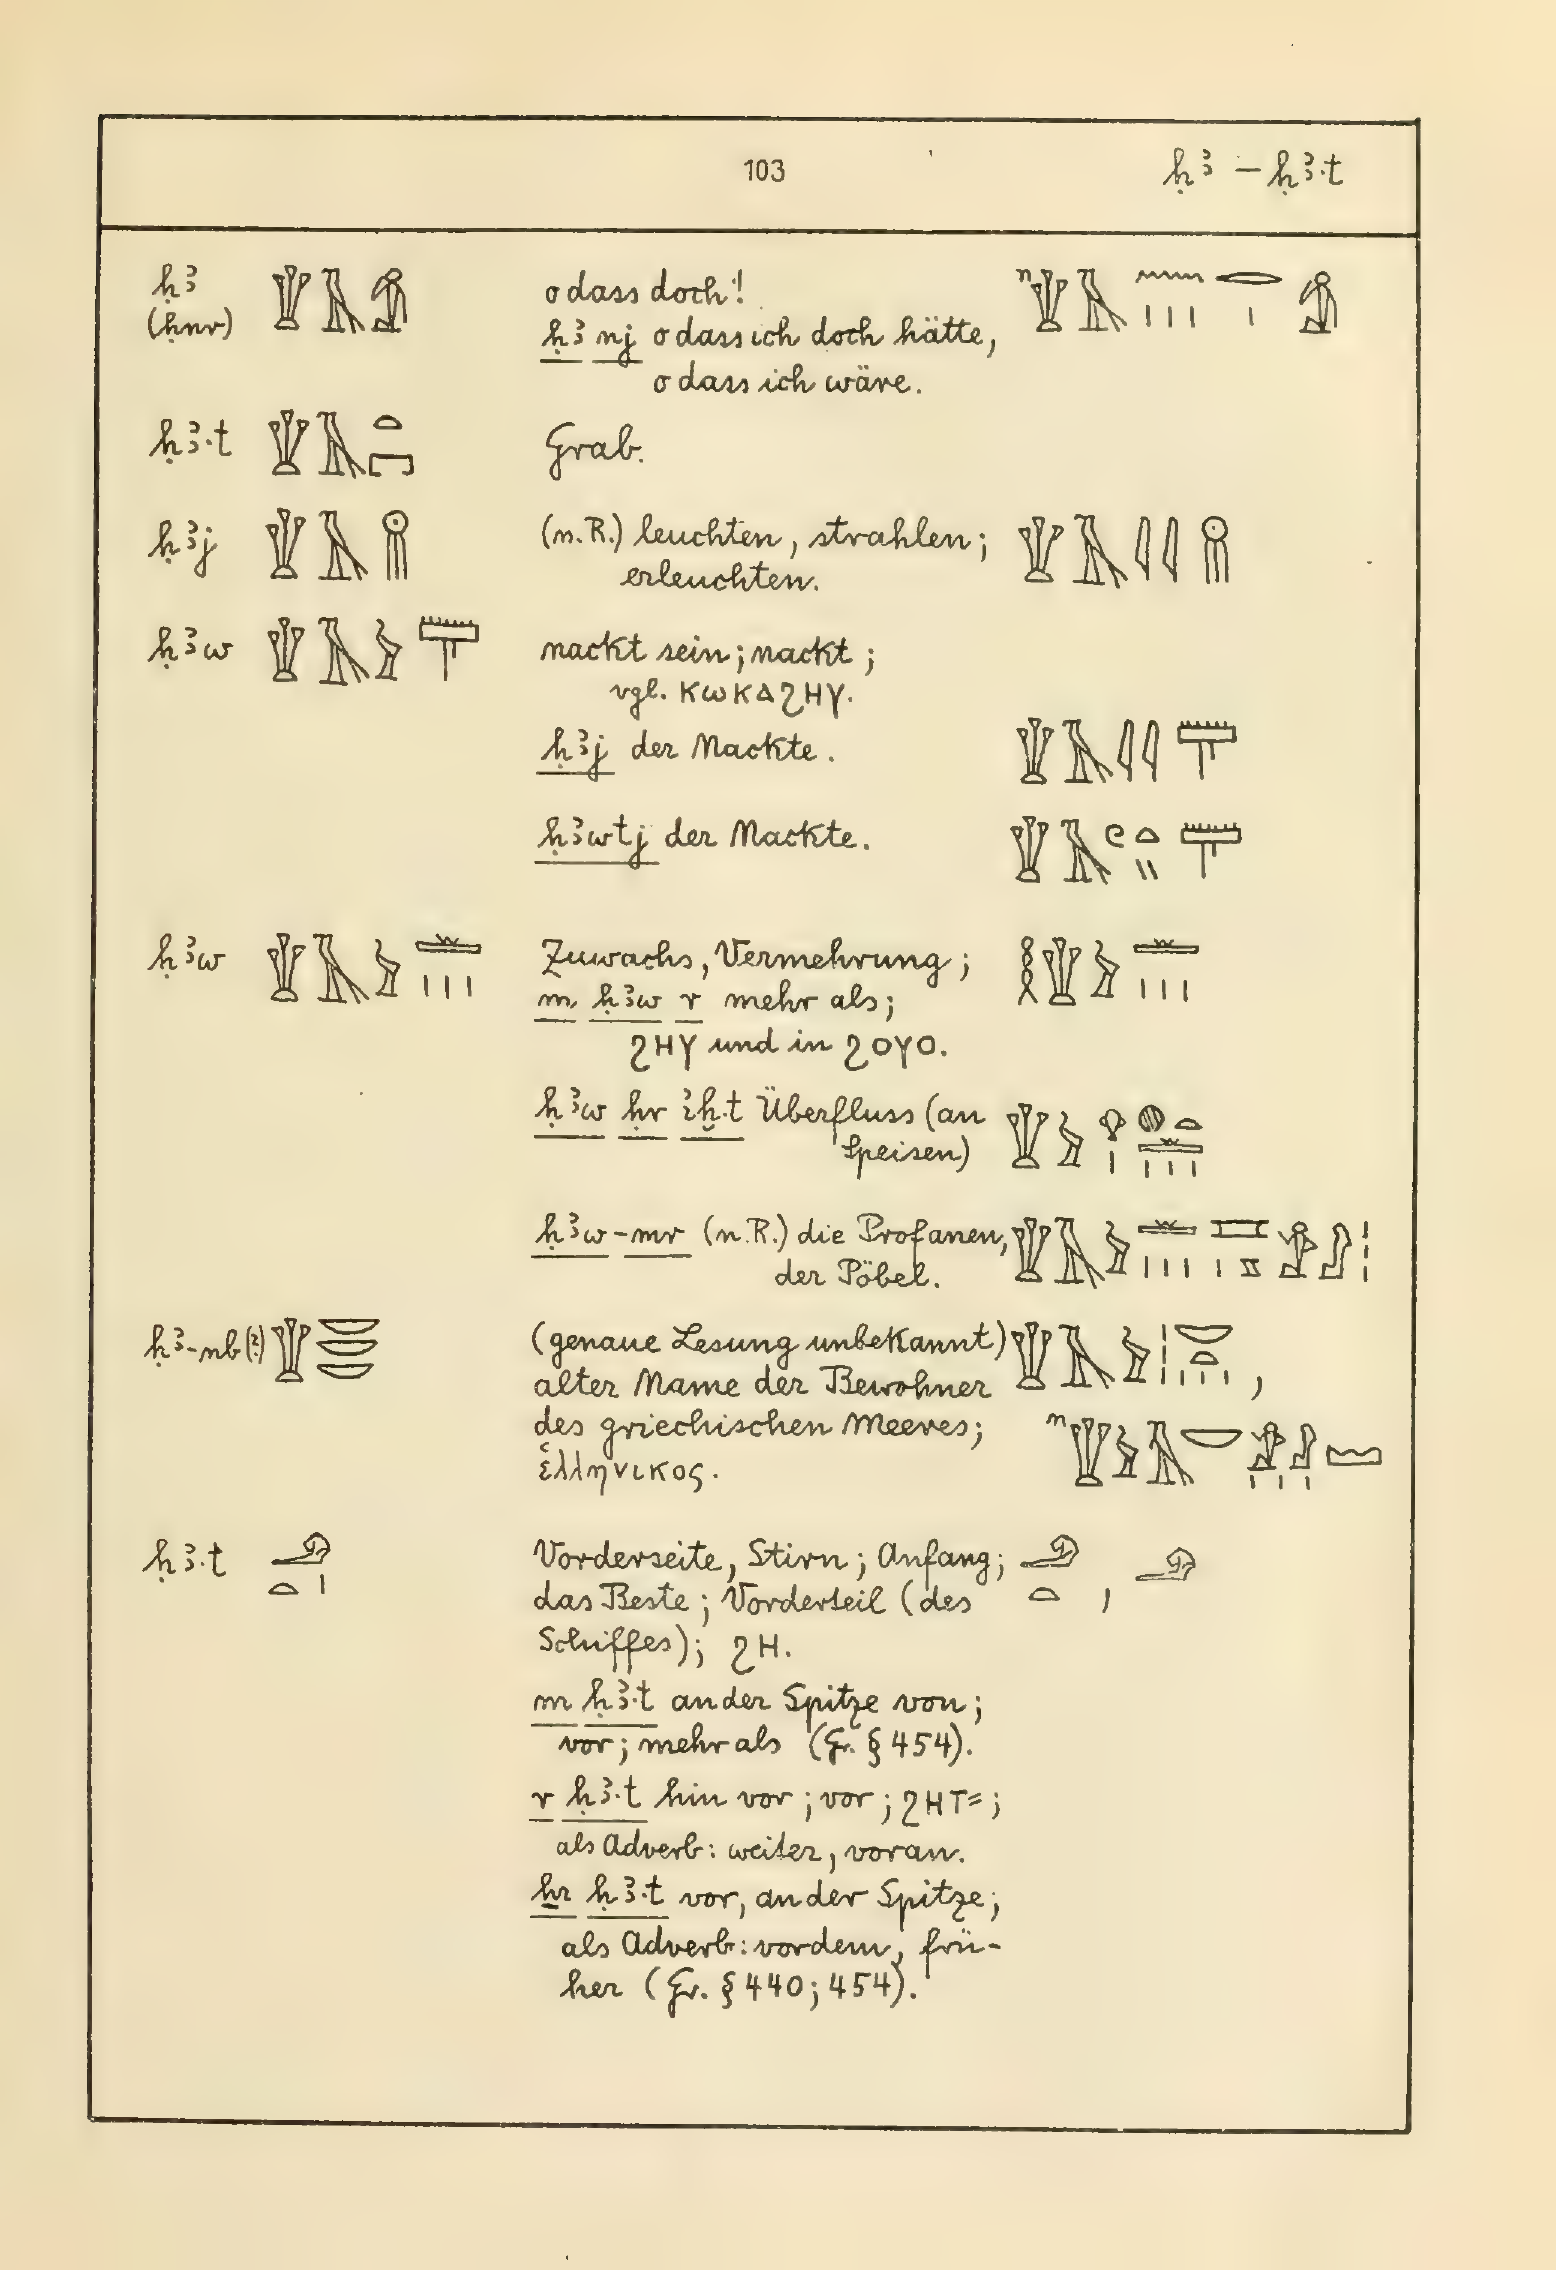 103
ḥꜣ – ḥꜣ·t
ḥꜣ o dass doch!
(ḥnr) ḥꜣ nj o dass ich doch hätte,
o dass ich wäre.
ḥꜣ·t Grab.
ḥꜣj (n.R.) leuchten, strahlen;
erleuchten.
ḥꜣw nackt sein; nackt;
vgl. ⲕⲱⲕⲁϩⲏⲩ.
ḥꜣj der Nackte.
ḥꜣwtj der Nackte.
ḥꜣw Zuwachs, Vermehrung;
m ḥꜣw r mehr als;
ϩⲏⲩ und in ϩⲟⲩⲟ.
ḥꜣw ḥr ꞽḫ·t Überfluss (an
Speisen)
ḥꜣw-mr (n.R.) die Profanen,
der Pöbel.
ḥꜣ-nb(?) (genaue Lesung unbekannt)
alter Name der Bewohner
des griechischen Meeres;
ἑλληνικος.
ḥꜣ·t Vorderseite, Stirn; Anfang;
das Beste; Vorderteil (des
Schiffes); ϩⲏ.
m ḥꜣ·t an der Spitze von;
vor; mehr als (Gr. § 454).
r ḥꜣ·t hin vor; vor; ϩⲏⲧ⸗;
als Adverb: weiter, voran.
ẖr ḥꜣ·t vor, an der Spitze;
als Adverb: vordem, frü-
her (Gr. § 440; 454).